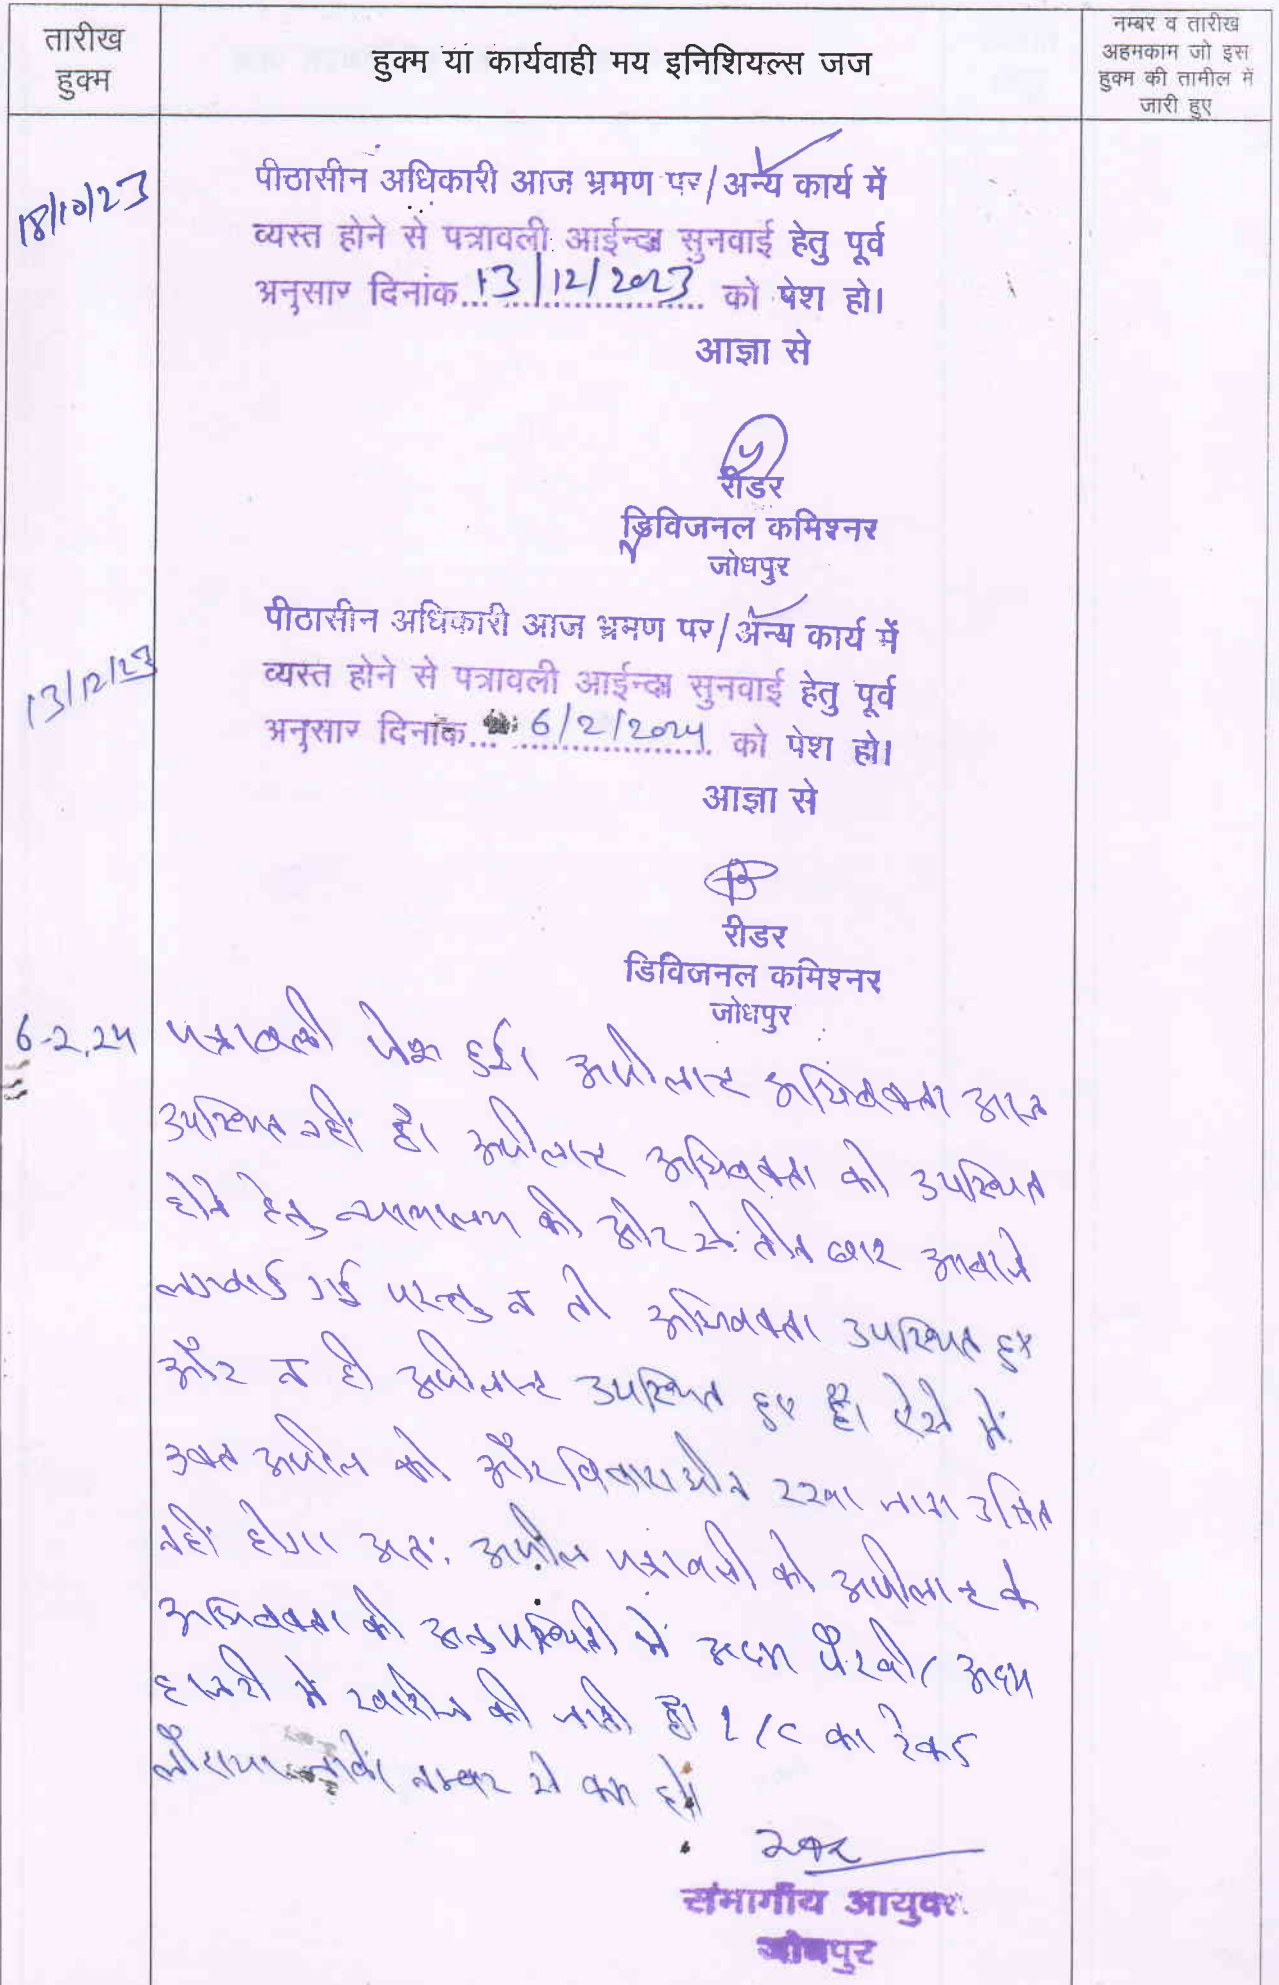 तारीख
हुक्म
हुक्म या कार्यवाही मय इनिशियल्स जज
नम्बर व तारीख
अहमकाम जो इस
हुक्म की तामील में
जारी हुए
18/10/23
पीठासीन अधिकारी आज भ्रमण पर/अन्य कार्य में
व्यस्त होने से पत्रावली आईन्दा सुनवाई हेतु पूर्व
अनुसार दिनांक... 13/12/2023 को पेश हो।
आज्ञा से
रीडर
डिविजनल कमिश्नर
जोधपुर
13/12/23
पीठासीन अधिकारी आज भ्रमण पर/अन्य कार्य में
व्यस्त होने से पत्रावली आईन्दा सुनवाई हेतु पूर्व
अनुसार दिनांक... 6/2/2024 को पेश हो।
आज्ञा से
रीडर
डिविजनल कमिश्नर
जोधपुर
6-2.24
पत्रावली पेश हुई। अपीलान्ट अधिवक्ता आज
उपस्थित नहीं है। अपीलान्ट अधिवक्ता को उपस्थित
होने हेतु न्यायालय की ओर से तीन बार आवाजे
लगवाई गई परन्तु न तो अधिवक्ता उपस्थित हुए
और न ही अपीलान्ट उपस्थित हुए है। ऐसे में
उक्त अपील को और विचाराधीन रखा जाना उचित
नहीं होगा। अतः अपील पत्रावली को अपीलान्ट के
अधिवक्ता की अनुपस्थिती में अदम पैरवी/अदम
हाजरी मे खारीज की जाती है। L/C का रेकर्ड
लौटाया जावे। नम्बर से कम हो।
संभागीय आयुक्त
जोधपुर